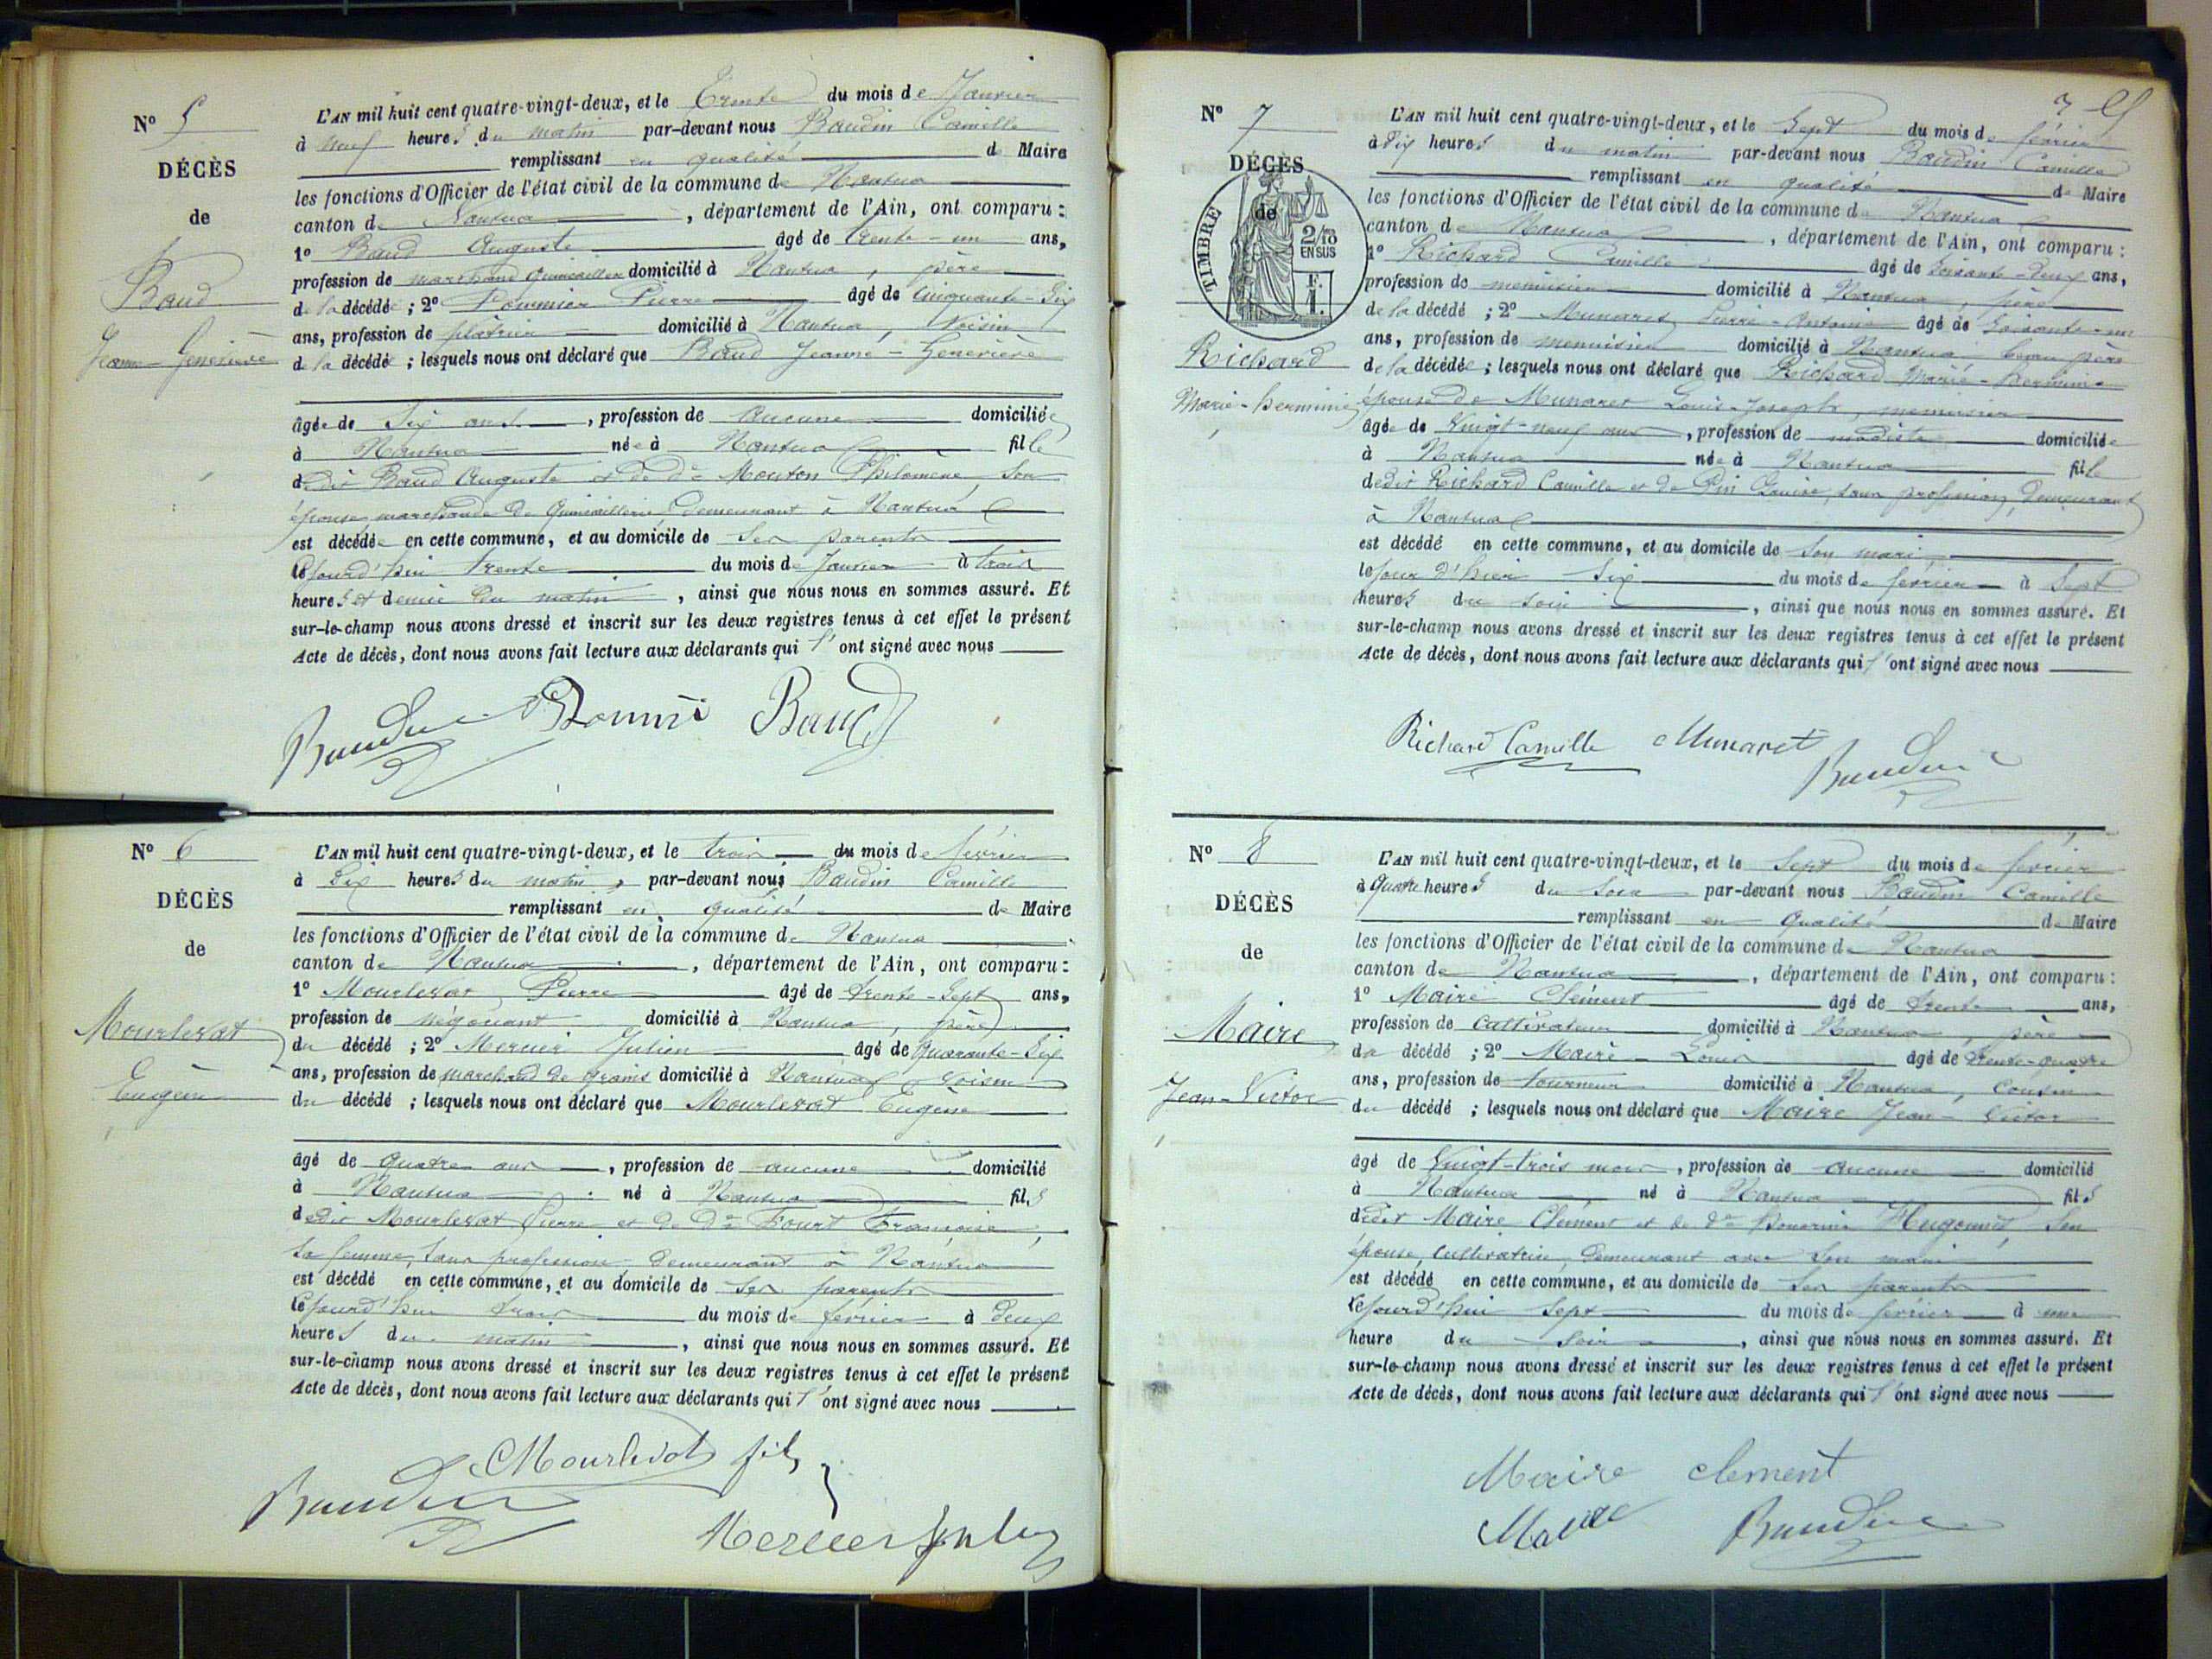 N° 5
DÉCÈS
de
Baud
Jeanne-Geneviève
L'AN mil huit cent quatre-vingt-deux, et le Trente du mois de Janvier
à neuf heures du matin par-devant nous Baudin Camille
remplissant en qualité de Maire
les fonctions d'Officier de l'état civil de la commune de Nantua
canton de Nantua, département de l'Ain, ont comparu :
1° Baud Auguste âgé de trente-un ans,
profession de marchand quincailler domicilié à Nantua, père
de la décédée ; 2° Pierre âgé de cinquante-six
ans, profession de plâtrier domicilié à Nantua, voisin
de la décédée ; lesquels nous ont déclaré que Baud Jeanne-Geneviève
âgée de six ans, profession de aucune domiciliée
à Nantua née à Nantua fille
dedit Baud Auguste et de de Mouton Philomène, son
épouse, marchande de quincaillerie demeurant à Nantua
est décédée en cette commune, et au domicile de ses parents
cejourd'hui trente du mois de Janvier à trois
heures et demie du matin, ainsi que nous nous en sommes assuré. Et
sur-le-champ nous avons dressé et inscrit sur les deux registres tenus à cet effet le présent
Acte de décès, dont nous avons fait lecture aux déclarants qui l'ont signé avec nous
Baudin Baud
N° 6
DÉCÈS
de
Mourlevat
Eugène
L'AN mil huit cent quatre-vingt-deux, et le trois du mois de février
à dix heures du matin, par-devant nous Baudin Camille
remplissant en qualité de Maire
les fonctions d'Officier de l'état civil de la commune de Nantua
canton de Nantua, département de l'Ain, ont comparu :
1° Mourlevat Pierre âgé de trente-sept ans,
profession de négociant domicilié à Nantua, père
du décédé ; 2° Mercier Julien âgé de quarante-six
ans, profession de marchand de grains domicilié à Nantua voisin
du décédé ; lesquels nous ont déclaré que Mourlevat Eugène
âgé de quatre ans, profession de aucune domicilié
à Nantua né à Nantua fils
dedit Mourlevat Pierre et de de Fourt Françoise,
sa femme, sans profession, demeurant à Nantua
est décédé en cette commune, et au domicile de ses parents
cejourd'hui trois du mois de février à deux
heures du matin, ainsi que nous nous en sommes assuré. Et
sur-le-champ nous avons dressé et inscrit sur les deux registres tenus à cet effet le présent
Acte de décès, dont nous avons fait lecture aux déclarants qui l'ont signé avec nous
Mourlevat fils
Baudin
Mercier Julien
7
N° 7
DÉCÈS
de
TIMBRE
2/10
EN SUS
F.
1.
Richard
Marie-hermine
L'AN mil huit cent quatre-vingt-deux, et le Sept du mois de février
à dix heures du matin par-devant nous Baudin Camille
remplissant en qualité de Maire
les fonctions d'Officier de l'état civil de la commune de Nantua
canton de Nantua, département de l'Ain, ont comparu :
1° Richard Camille âgé de soixante-deux ans,
profession de menuisier domicilié à Nantua, père
de la décédée ; 2° Munaret Pierre-Antoine âgé de soixante-un
ans, profession de menuisier domicilié à Nantua beau père
de la décédée ; lesquels nous ont déclaré que Richard Marie-hermine
épouse de Munaret Louis-Joseph, menuisier
âgée de vingt-neuf ans, profession de modiste domiciliée
à Nantua née à Nantua fille
dedit Richard Camille et de Pin Louise, sans profession, demeurant
à Nantua
est décédé en cette commune, et au domicile de son mari
lejour d'hier six du mois de février à sept
heures du soir, ainsi que nous nous en sommes assuré. Et
sur-le-champ nous avons dressé et inscrit sur les deux registres tenus à cet effet le présent
Acte de décès, dont nous avons fait lecture aux déclarants qui l'ont signé avec nous
Richard Camille Munaret Baudin
N° 8
DÉCÈS
de
Maire
Jean-Victor
L'AN mil huit cent quatre-vingt-deux, et le Sept du mois de février
à quatre heures du soir par-devant nous Baudin Camille
remplissant en qualité de Maire
les fonctions d'Officier de l'état civil de la commune de Nantua
canton de Nantua, département de l'Ain, ont comparu :
1° Maire Clément âgé de trente ans,
profession de cultivateur domicilié à Nantua, père
du décédé ; 2° Maire Louis âgé de trente-quatre
ans, profession de tourneur domicilié à Nantua, cousin
du décédé ; lesquels nous ont déclaré que Maire Jean-Victor
âgé de vingt-trois mois, profession de aucune domicilié
à Nantua né à Nantua fils
dedit Maire Clément et de de Hugonnet, son
épouse, cultivatrice, demeurant avec son mari
est décédé en cette commune, et au domicile de ses parents
cejourd'hui sept du mois de février à une
heure du soir, ainsi que nous nous en sommes assuré. Et
sur-le-champ nous avons dressé et inscrit sur les deux registres tenus à cet effet le présent
Acte de décès, dont nous avons fait lecture aux déclarants qui l'ont signé avec nous
Maire clement
Maire Baudin